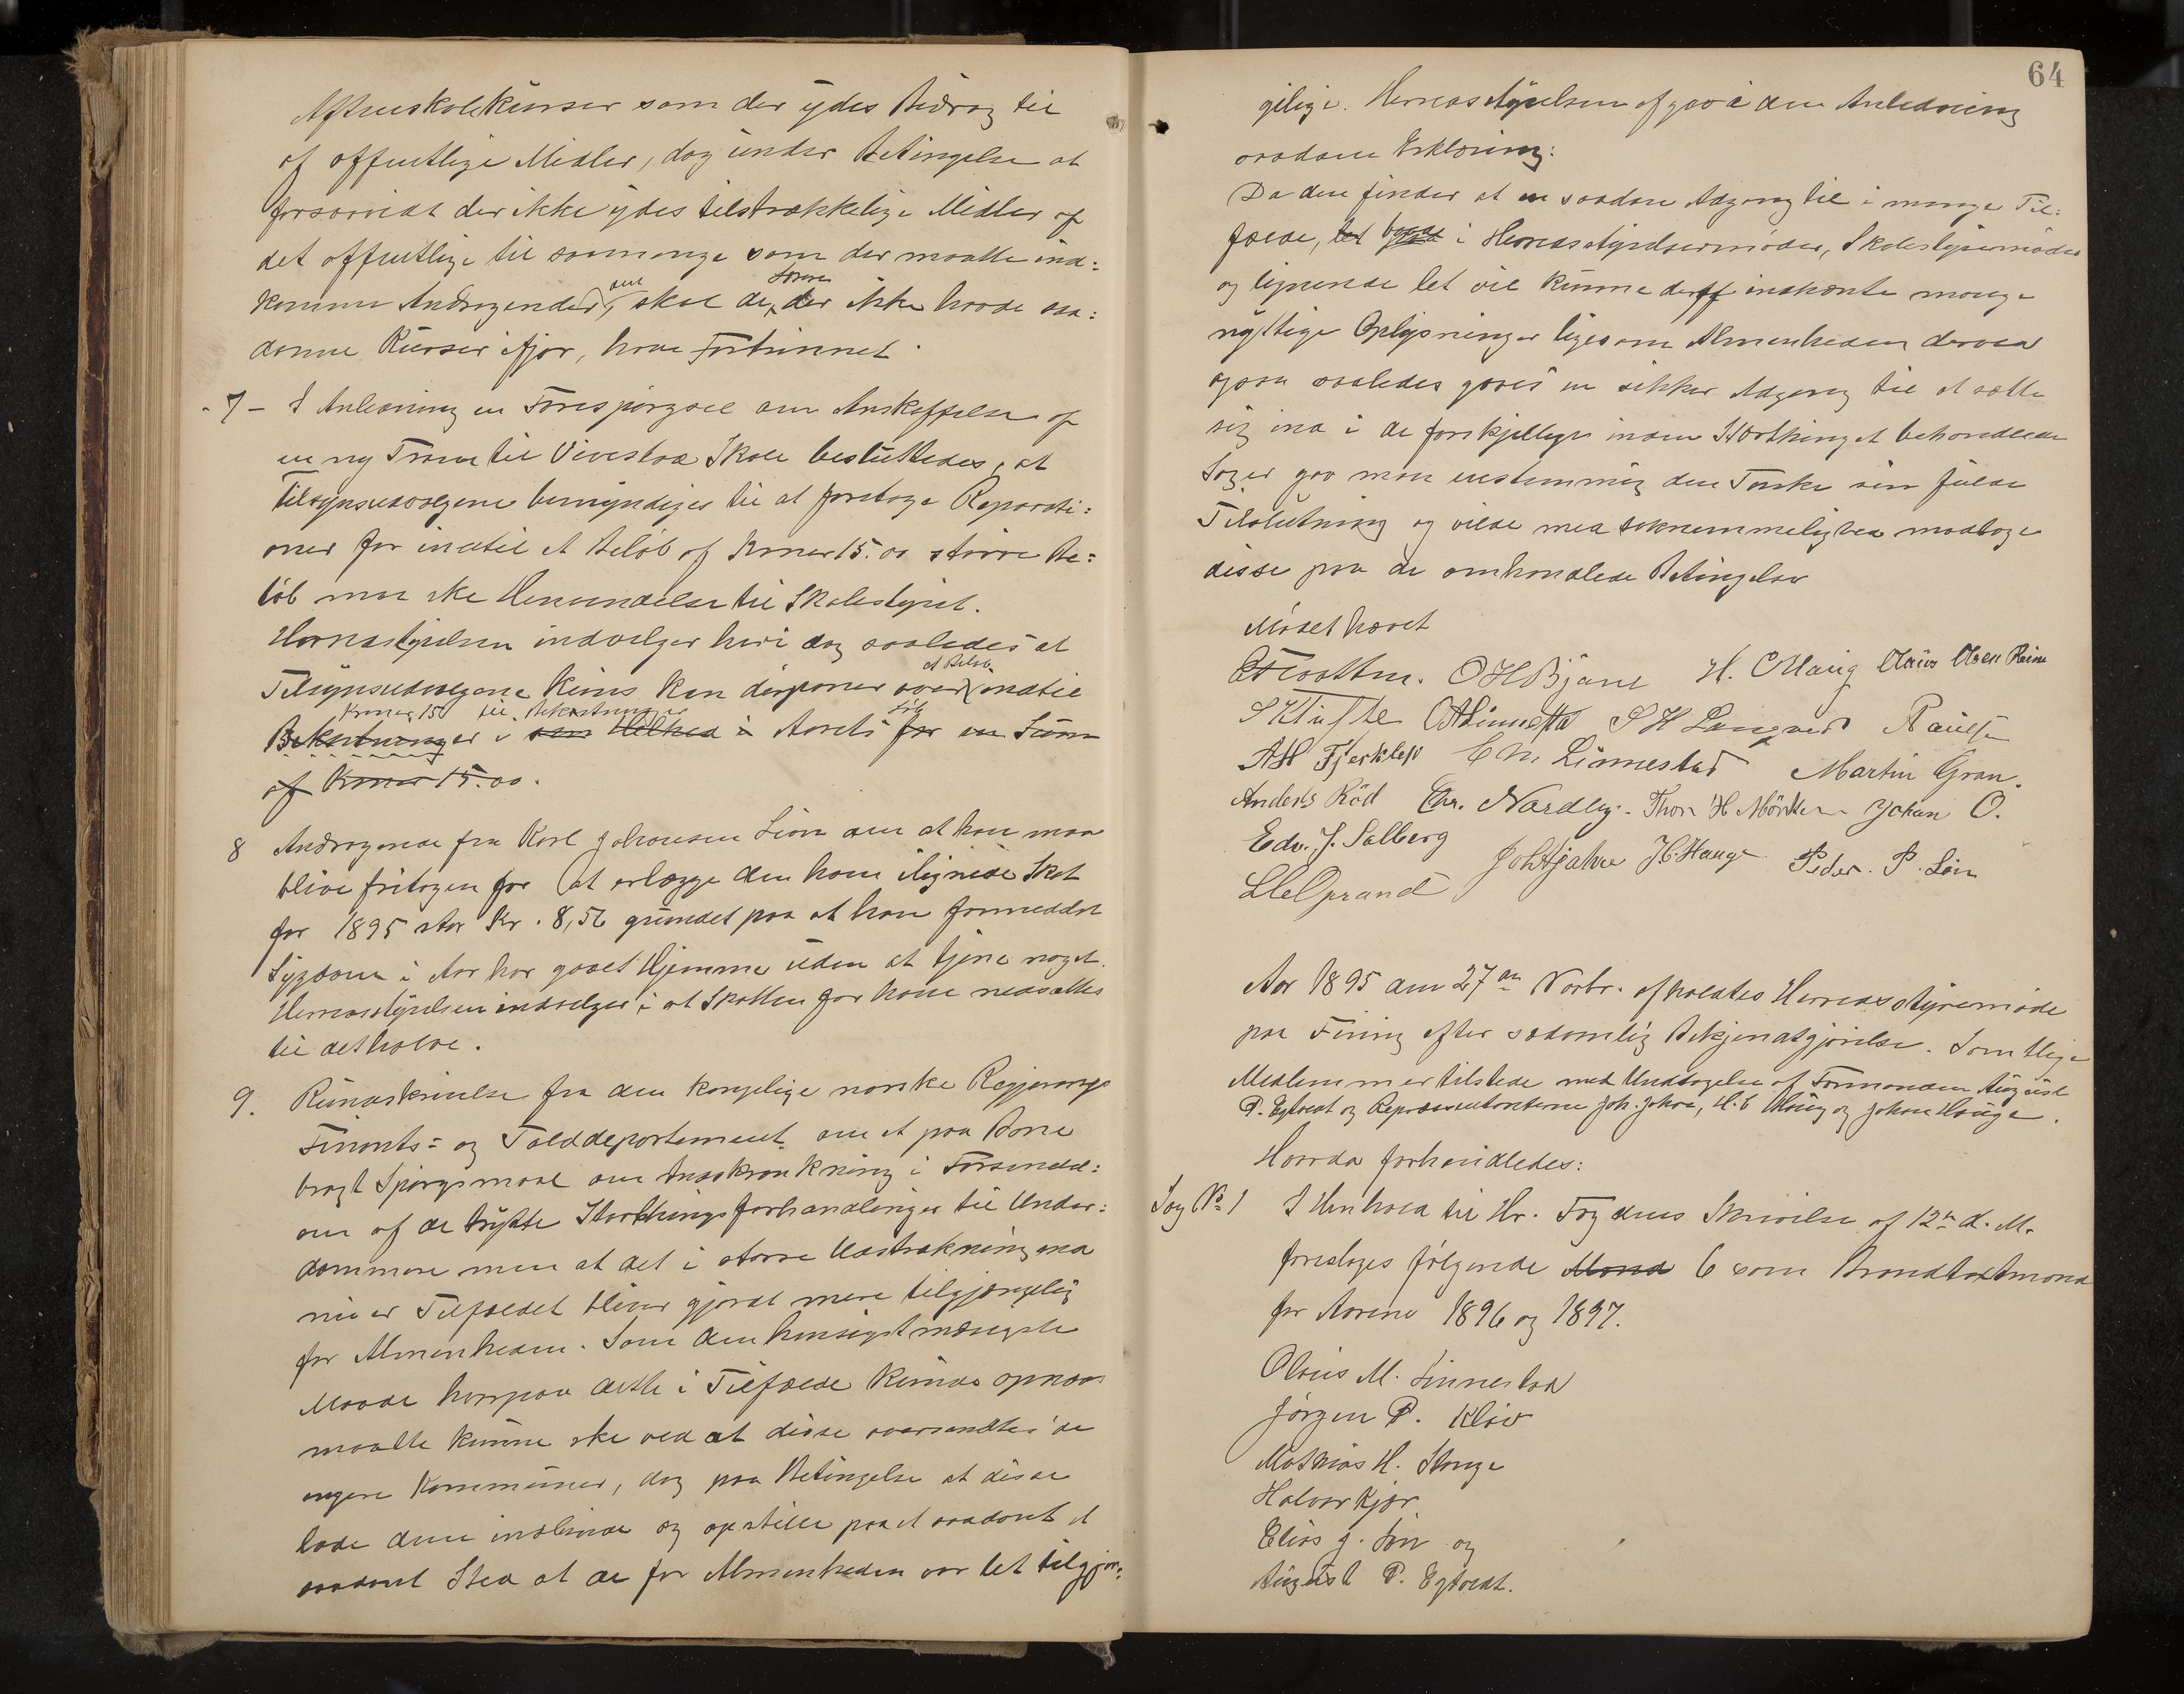 Aftenskolekurser som der ydes Bidrag til
af offentlige Midler, dog under Betingelse at
forsaavidt der ikke ydes tilstrækkelige Midler af
det offentlige til saamange som der maatte ind=
komme Andragender om, skal de Somme der ikke havde saa=
danne Kurser ifjor, have Fortrinnet.
- 7 - I Anledning en Forespørgsel om Anskaffelse af
en ny Tram til Vivestad Skole besluttedes, at
Tilsynsudvalgene bemyndiges til at foretage Reparati=
oner for indtil et Beløb af Kroner 15.00 større Be=
løb maa ske Henvendelse til Skolestyret.
Herredsstyrelsen indvilger heri dog saaledes at
Tilsynsudvalgene kuns kan disponer over et Beløb indtil
Kroner 15 til Bekostninger i Aaret
Bekostninger i sin Helhed i Aarets for en Sum
af Kroner 15.00.
8 Andragende fra Karl Johansen Lion om at han maa
blive fritagen for at erlægge den ham ilignede Skat
for 1895 stor Kr. 8,56 grundet paa at han formedelst
Sygdom i Aar har gaaet Hjemme uden at tjene noget.
Herredsstyrelsen indvilger i at Skatten for ham nedsættes
til det halve.
9. Rundskrivelse fra den kongelige norske Regjerings
Finants= og Tolddepartement om et paa Bane
bragt Spørgsmaal om Indskrænkning i Forsendel=
sen af de trykte Storthingsforhandlinger til Under=
dommere men at det i større Udstrækning end
nu er Tilfældet bliver gjordt mere tilgjængelig
for Almenheden. Som den hensigtmæssigste
Maade hvorpaa dette i Tilfælde kunde opnaaes
maatte kunne ske ved at disse oversendtes de
enger Kommuner, dog paa Betingelse at disse
lade dem indbinde og opstille paa et saadant et
saadant Sted at de for Almenheden var let tilgjæn=
64
gelige. Herredsstyrelsen afgav i den Anledning
saadan Erklæring:
Da den finder at en saadan Adgang til i mange Til=
fælde, let baade i Herredsstyrelsermøder, Skolestyremøder
og lignende let vil kunne deraf indhænte mange
nyttige Oplysninger ligesom Almenheden derved
ogsaa saaledes gaves en sikker Adgang til at sætte
sig ind i de forskjellige inden Storthinget behandlede
Sager gav man enstemmig den Tanke sin fulde
Tilslutning og vilde med taknemmelighed modtage
disse paa de omhandlede Betingelser
Mødet hævet
O H Bjane H. C Haug Claus Olsen Rein
S Klufte A Linnestad S H Langved Paulsen
A H Fjerkless C M Linnestad Martin Gran.
Anders Röd Chr. Nordby. Thor H Mörken Johan O.
Edv. J. Solberg Joh Hjahre J C Hauge Peder. P. Löin
Aar 1895 den 27de Novbr. afholdtes Herredsstyremøde
paa Fining efter sædvanlig Bekjendtgjørelse. Samtlige
Medlemmer tilstede med Undtagelse af Formanden August
P. Eftedt og Repræsentanterne Joh. Johre, H. C Haug og Johan Hauge.
Hvorda forhandledes:
Sag No 1 I Henhold til Hr. Fogdens Skrivelse af 12te d. M.
foreslages følgende Mænd 6 som Brandtaxtmænd
for Aarene 1896 og 1897.
Olaus M. Linnestad
Jørgen P. Kløv
Mathias H. Stange
Halvor Kjær
Elias J. Løn og
August P. Eftedt.